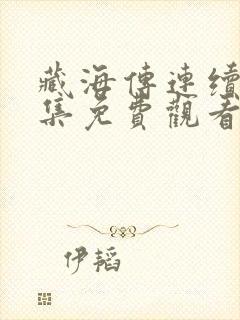 藏海傳連續
集免費觀看
伊韜